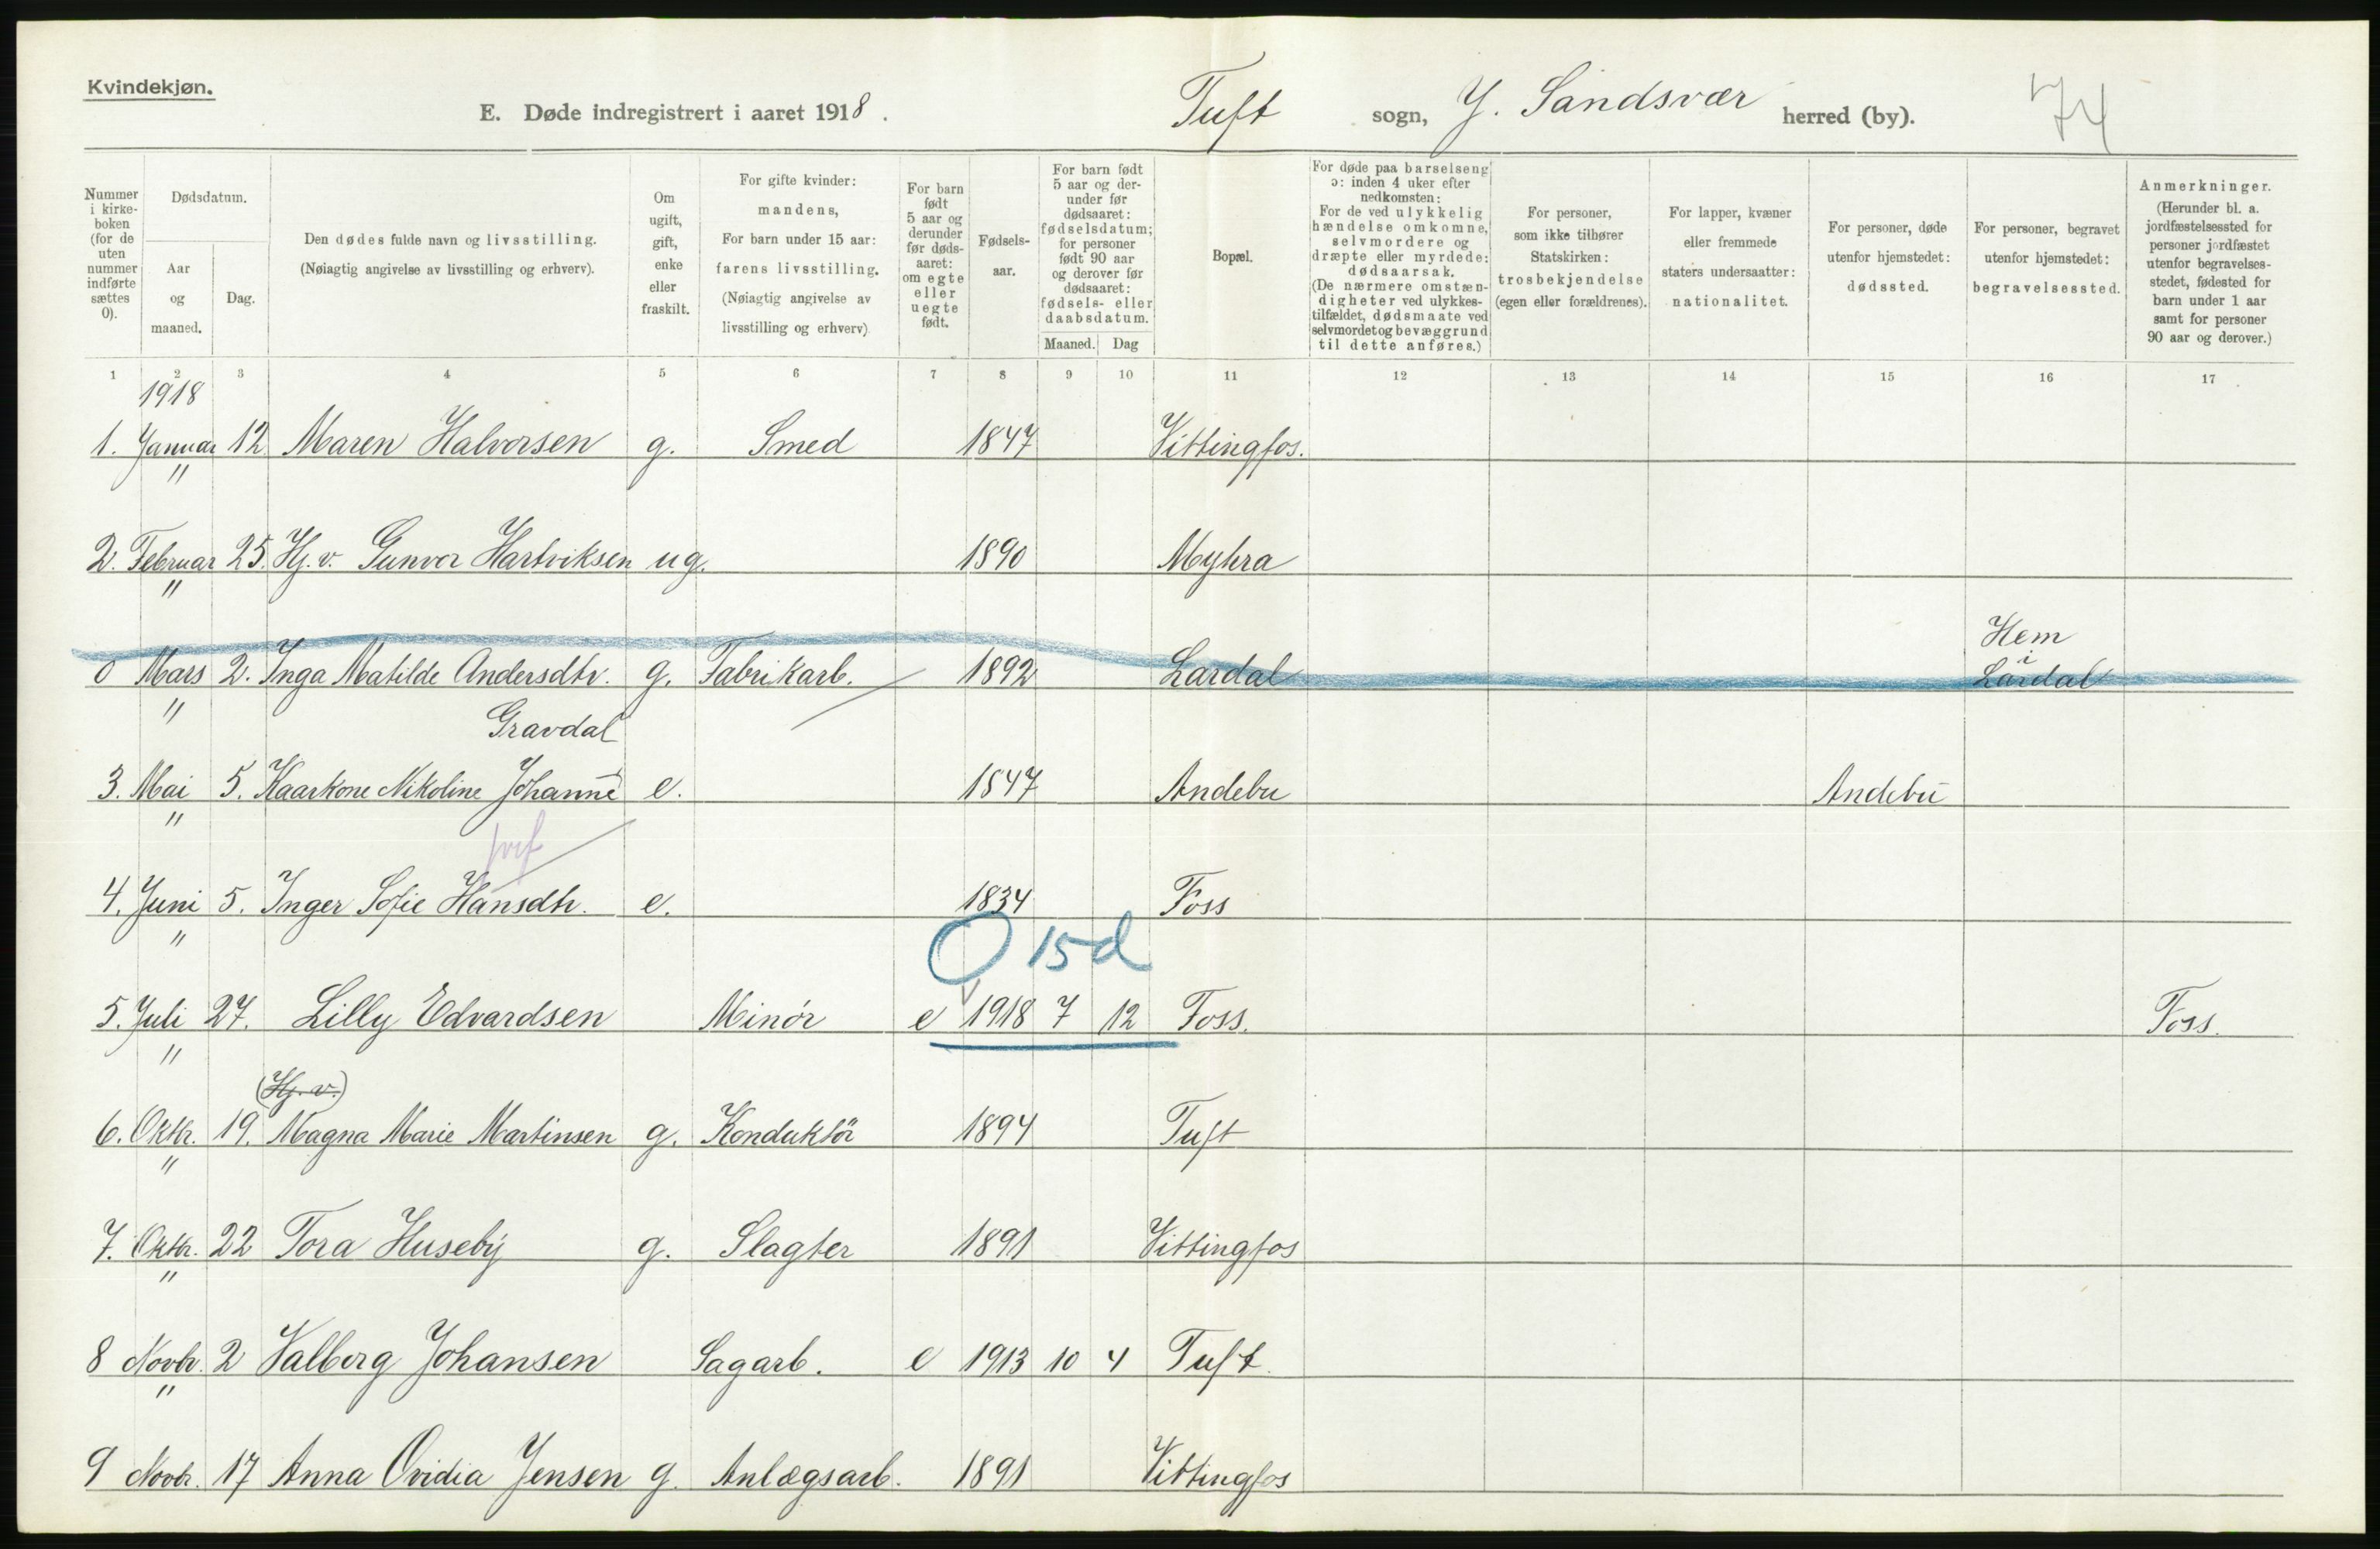 Kvindekjøn.
E. Døde indregistrert i aaret 1918. Tuft sogn, Y. Sandsvær herred (by). 74
Nummer i kirke-boken (for de uten nummer indførte sættes 0).
Dødsdatum.
Aar og maaned.
Dag.
Den dødes fulde navn og livsstilling.
(Nøiagtig angivelse av livsstilling og erhverv).
Om ugift, gift, enke eller fraskilt.
For gifte kvinder: mandens,
For barn under 15 aar: farens livsstilling.
(Nøiagtig angivelse av livsstilling og erhverv)
For barn født 5 aar og derunder før døds-aaret: om egte eller uegte født.
Fødsels-aar.
For barn født 5 aar og der-under før dødsaaret: fødselsdatum; for personer født 90 aar og derover før dødsaaret: fødsels- eller daabsdatum.
Maaned. Dag
Bopæl.
For døde paa barselseng ɔ: inden 4 uker efter nedkomsten:
For de ved ulykkelig hændelse omkomne, selvmordere og dræpte eller myrdede: dødsaarsak.
(De nærmere omstæn-digheter ved ulykkes-tilfældet, dødsmaate ved selvmordet og bevæggrund til dette anføres.)
For personer, som ikke tilhører Statskirken: trosbekjendelse (egen eller forældrenes).
For lapper, kvæner eller fremmede staters undersaatter: nationalitet.
For personer, døde utenfor hjemstedet: dødssted.
For personer, begravet utenfor hjemstedet: begravelsessted.
Anmerkninger.
(Herunder bl. a. jordfæstelsessted for personer jordfæstet utenfor begravelses-stedet, fødested for barn under 1 aar samt for personer 90 aar og derover.)
1 2 3 4 5 6 7 8 9 10 11 12 13 14 15 16 17
1918
1. Januar 12 Maren Halvorsen g. Smed 1847 Vittingfos.
"
2. Februar 25. Hj. v. Gunvor Hartviksen ug. 1890 Myhra
"
Hem
i
0 Mars 2. Inga Matilde Andersdtr. g. Fabrikarb. 1892 Lardal Lardal
" Gravdal
3. Mai 5. Kaarkone Nikoline Johanne e. 1847 Andebu Andebu
"
4. Juni 5. Inger Sofie Hansdtr. e. 1834 Foss
"
O 15d
5. Juli 27. Lilly Edvardsen Minör e 1918 7 12 Foss. Foss.
"
(Hj. v.)
6. Oktbr. 19. Magna Marie Martinsen g. Konduktör 1894 Tuft
"
7. Oktbr. 22 Tora Huseby g. Slagter 1891 Vittingfos
"
8 Novbr. 2 Valborg Johansen Sagarb. e 1913 10 4 Tuft.
"
9 Novbr. 17 Anna Ovidia Jensen g. Anlægsarb. 1891 Vittingfos